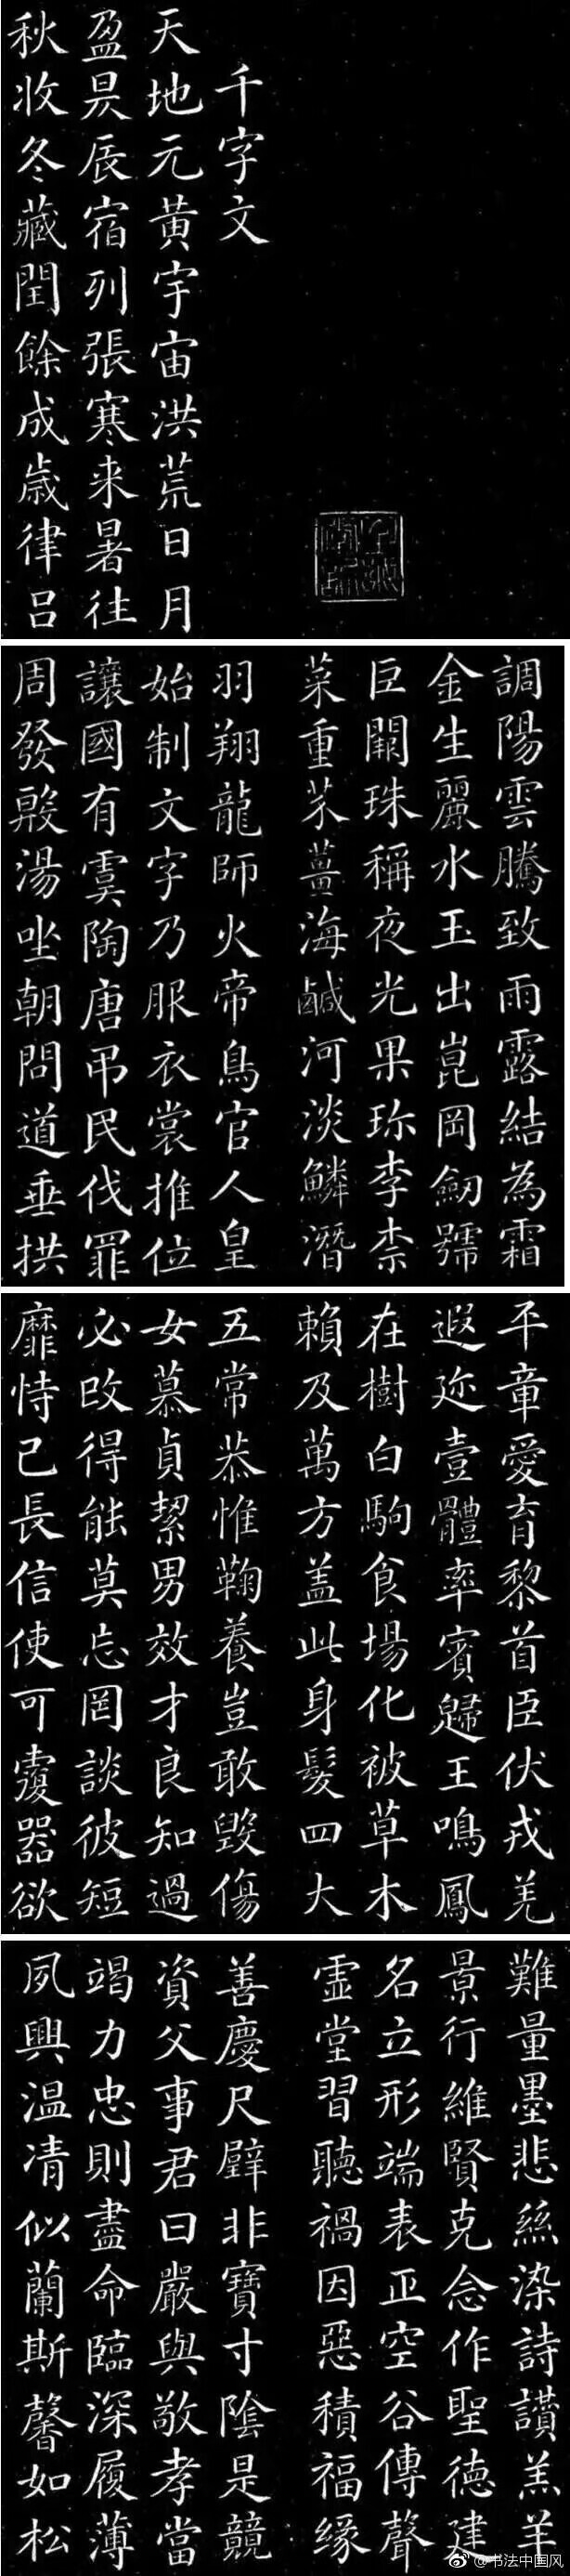 千字文
天地元黃宇宙洪荒日月
盈昃辰宿列張寒来暑往
秋收冬藏閏餘成歲律呂
調陽雲騰致雨露結為霜
金生麗水玉出崑岡劒號
巨闕珠稱夜光果珎李柰
菜重芥薑海鹹河淡鱗潛
羽翔龍師火帝鳥官人皇
始制文字乃服衣裳推位
讓國有虞陶唐吊民伐罪
周發殷湯坐朝問道垂拱
平章愛育黎首臣伏戎羌
遐迩壹體率賓歸王鳴鳳
在樹白駒食場化被草木
賴及萬方盖此身髮四大
五常恭惟鞠養豈敢毀傷
女慕貞絜男效才良知過
必改得能莫忘罔談彼短
靡恃己長信使可覆器欲
難量墨悲絲染詩讃羔羊
景行維賢克念作聖德建
名立形端表正空谷傳聲
虛堂習聽禍因惡積福緣
善慶尺璧非寶寸陰是競
資父事君曰嚴與敬孝當
竭力忠則盡命臨深履薄
夙興温凊似蘭斯馨如松
@书法中国风